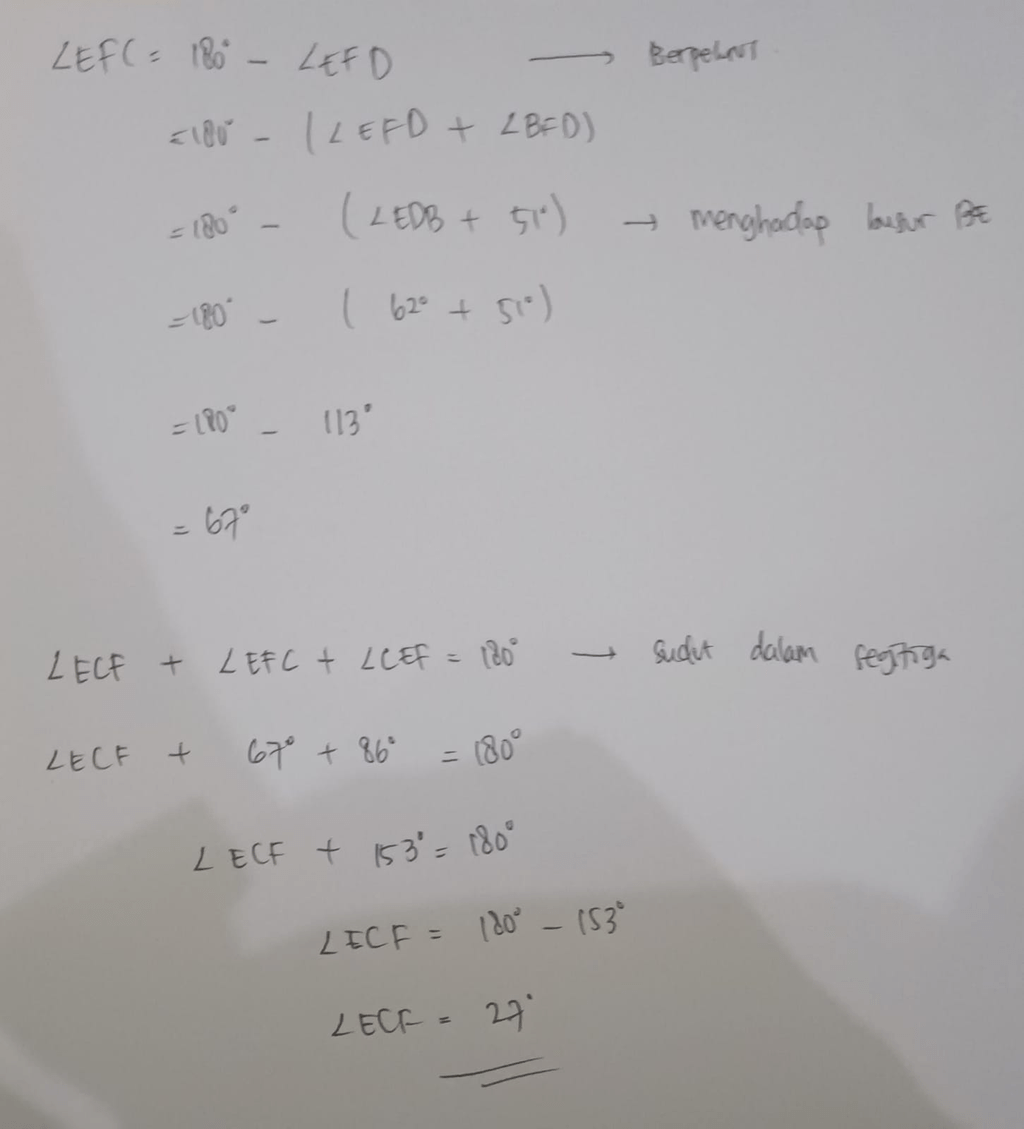 ∠EFC = 180° - ∠EFD → Berpelurus
= 180° - (∠EFD + ∠BFD)
= 180° - (∠EDB + 51°) → menghadap busur BE
= 180° - ( 62° + 51°)
= 180° - 113°
= 67°
∠ECF + ∠EFC + ∠CEF = 180° → Sudut dalam segitiga
∠ECF + 67° + 86° = 180°
∠ECF + 153° = 180°
∠ECF = 180° - 153°
∠ECF = 27°